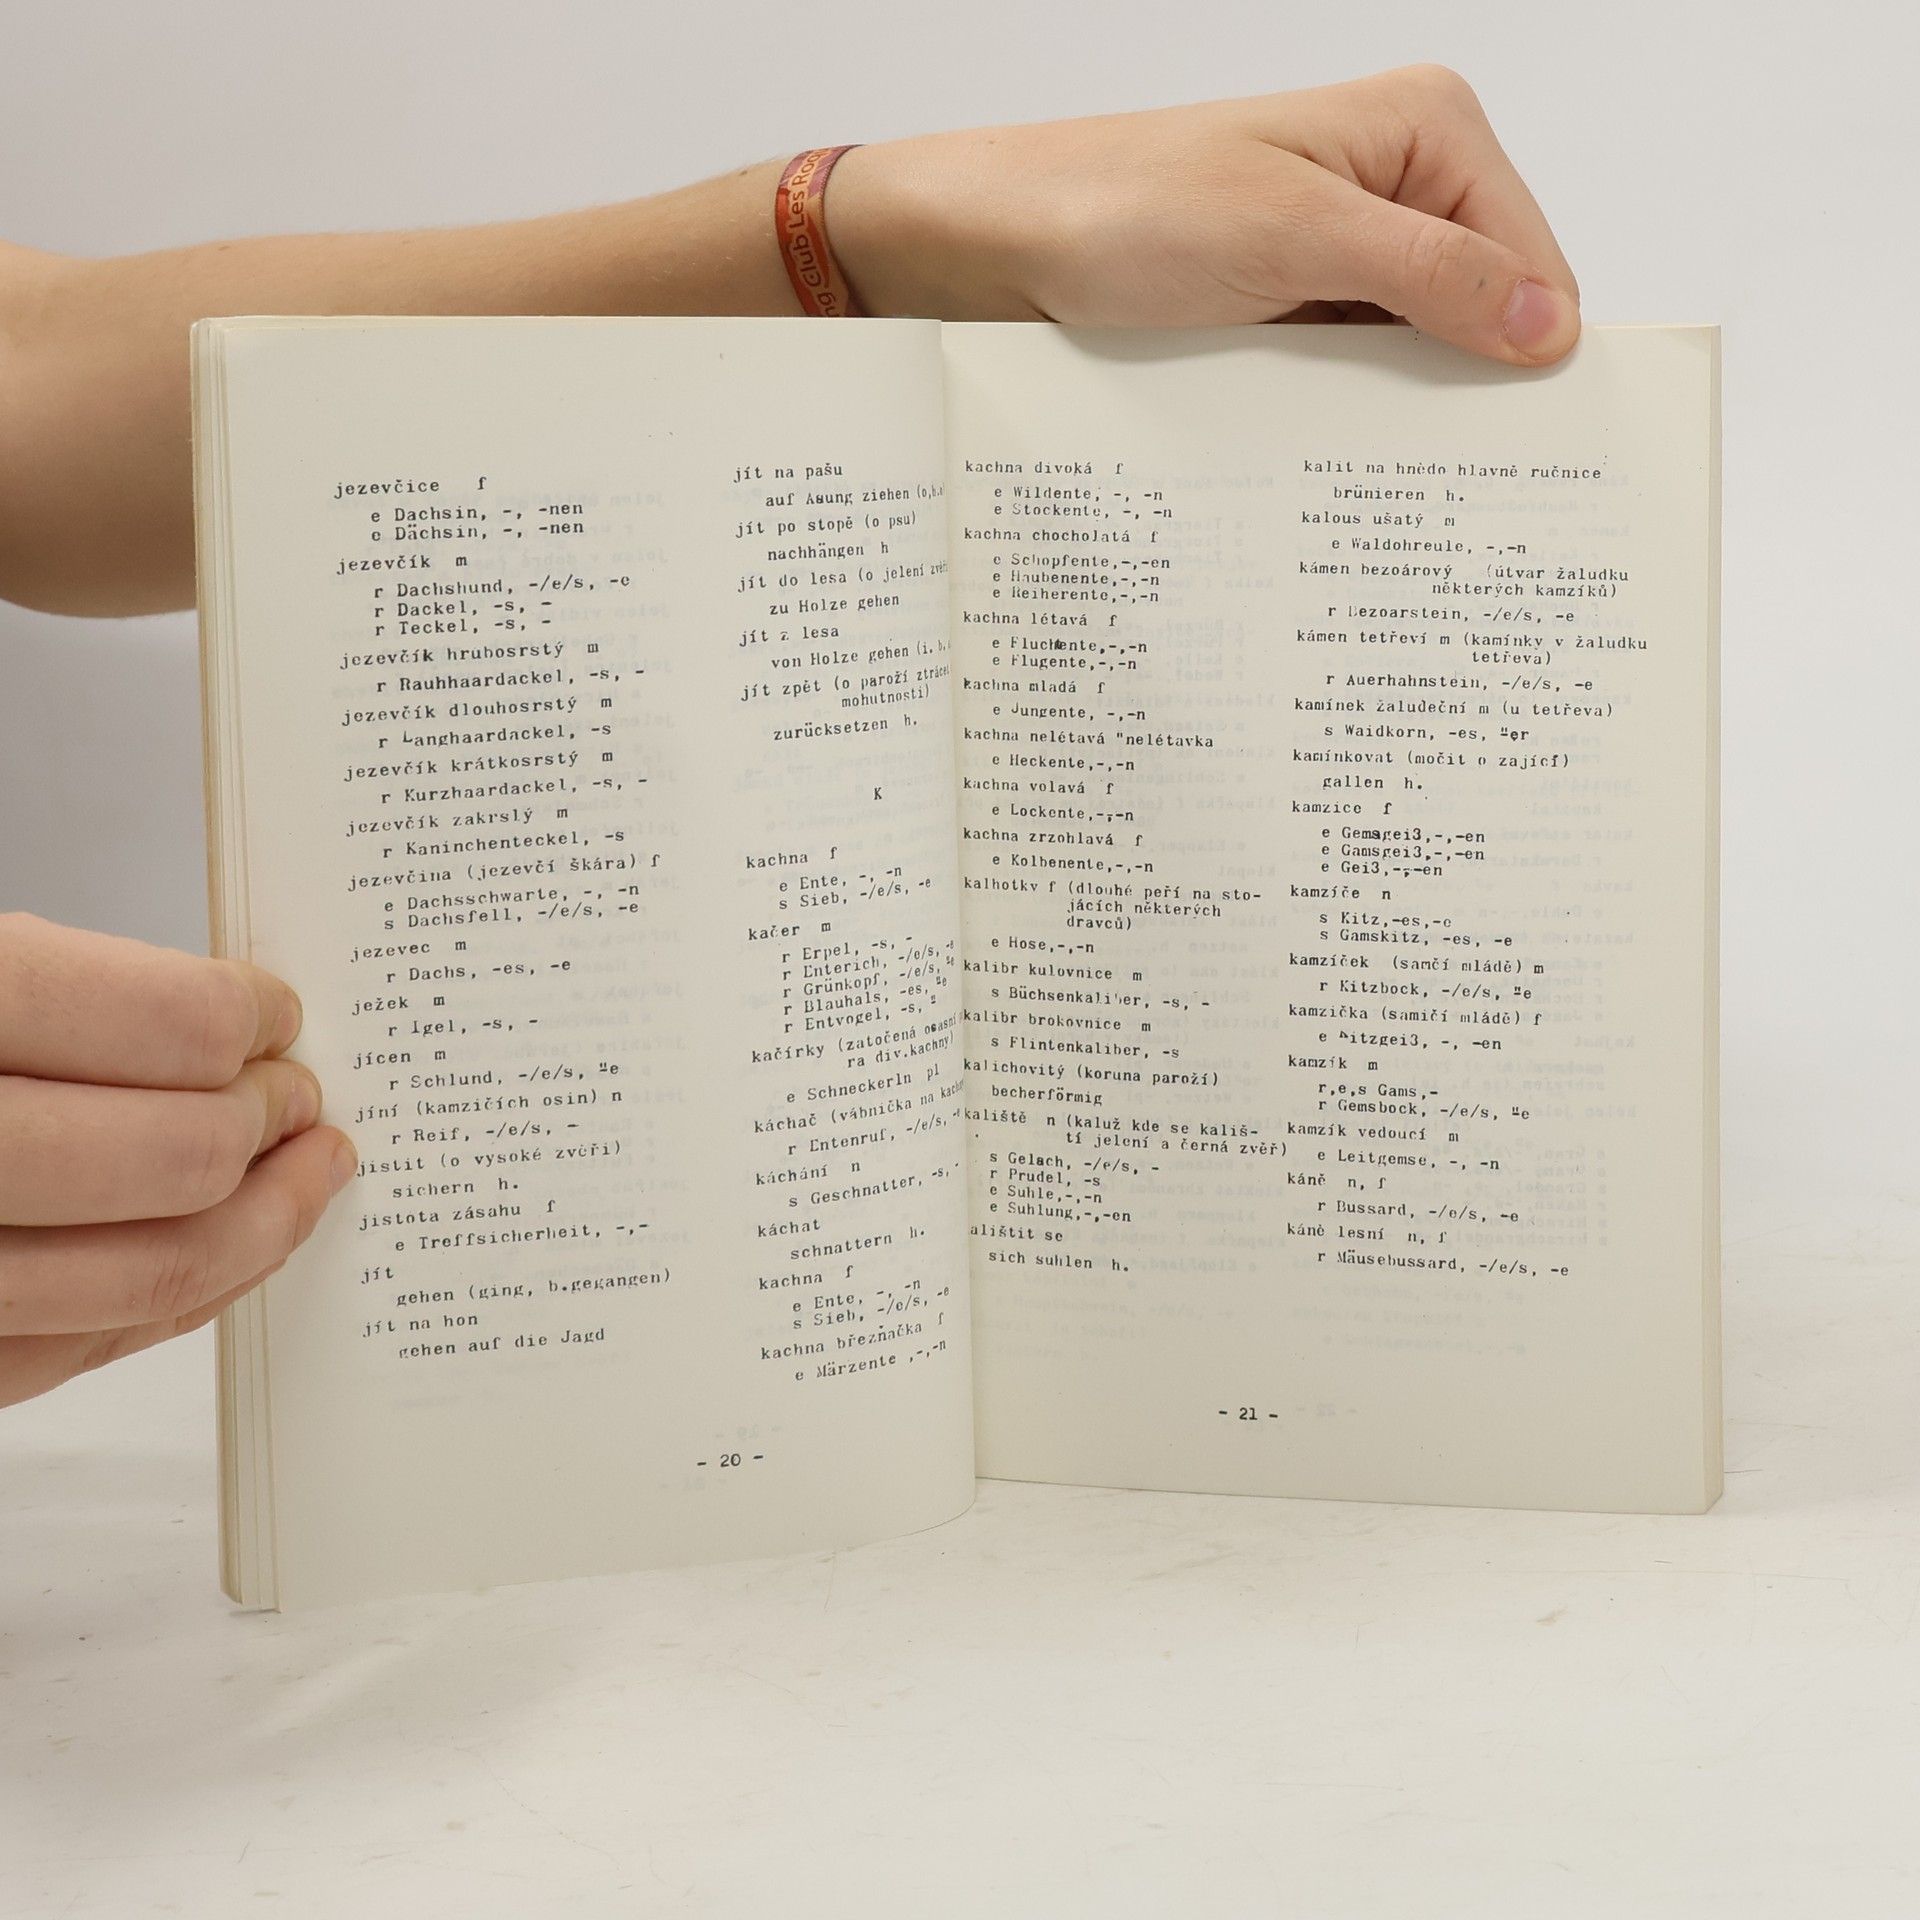 ng Club Les Roq
jezevčice f
e Dachsin, -, -nen
e Dächsin, -, -nen
jezevčík m
r Dachshund, -/e/s, -e
r Dackel, -s, -
r Teckel, -s, -
jezevčík hrubosrstý m
r Rauhhaardackel, -s, -
jezevčík dlouhosrstý m
r Langhaardackel, -s
jezevčík krátkosrstý m
r Kurzhaardackel, -s, -
jezevčík zakrslý m
r Kaninchenteckel, -s
jezevčina (jezevčí škára) f
e Dachsschwarte, -, -n
s Dachsfell, -/e/s, -e
jezevec m
r Dachs, -es, -e
ježek m
r Igel, -s, -
jícen m
r Schlund, -/e/s, "e
jíní (kamzičích osin) n
r Reif, -/e/s, -
jistit (o vysoké zvěři)
sichern h.
jistota zásahu f
e Treffsicherheit, -,-
jít
gehen (ging, b.gegangen)
jít na hon
gehen auf die Jagd
jít na pašu
auf Asung ziehen (o,b.
jít po stopě (o psu)
nachhängen h
jít do lesa (o jelení zvěři
zu Holze gehen
jít z lesa
von Holze gehen (i. b.
jít zpět (o paroží ztrácí
mohutnosti)
zurücksetzen h.
K
kachna f
e Ente, -, -n
s Sieb, -/e/s, -e
kačer m
r Erpel, -s, -
r Enterich, -/e/s, -e
r Grünkopf, -/e/s, "e
r Blauhals, -es, "e
r Entvogel, -s, "
kačírky (zatočená ocasní
ra div.kachny)
e Schneckerln pl
káchač (vábnička na kachn
r Entenruf, -/e/s, -e
káchání n
s Geschnatter, -s, -
káchat
schnattern h.
kachna f
e Ente, -, -n
s Sieb, -/e/s, -e
kachna březňačka f
e Märzente ,-,-n
- 20 -
kachna divoká f
e Wildente, -, -n
e Stockente, -, -n
kachna chocholatá f
e Schopfente,-,-en
e Haubenente,-,-n
e Reiherente,-,-n
kachna létavá f
e Fluchtente,-,-n
e Flugente,-,-n
kachna mladá f
e Jungente, -,-n
kachna nelétavá "nelétavka
e Heckente,-,-n
kachna volavá f
e Lockente,-,-n
kachna zrzohlavá f
e Kolbenente,-,-n
kalhotky f (dlouhé peří na sto-
jácích některých
dravců)
e Hose,-,-n
kalibr kulovnice m
s Büchsenkaliber, -s, -
kalibr brokovnice m
s Flintenkaliber, -s
kalichovitý (koruna paroží)
becherförmig
kaliště n (kaluž kde se kališ-
tí jelení a černá zvěř)
s Gelach, -/e/s, -
r Prudel, -s
e Suhle,-,-n
e Suhlung,-,-en
alištit se
sich suhlen h.
kalit na hnědo hlavně ručnice
brünieren h.
kalous ušatý m
e Waldohreule, -,-n
kámen bezoárový (útvar žaludku
některých kamzíků)
r Bezoarstein, -/e/s, -e
kámen tetřeví m (kamínky v žaludku
tetřeva)
r Auerhahnstein, -/e/s, -e
kamínek žaludeční m (u tetřeva)
s Waidkorn, -es, "er
kamínkovat (močit o zající)
gallen h.
kamzice f
e Gemsgei3,-,-en
e Gamsgei3,-,-en
e Gei3,-,-en
kamzíče n
s Kitz,-es,-e
s Gamskitz, -es, -e
kamzíček (samčí mládě) m
r Kitzbock, -/e/s, "e
kamzička (samičí mládě) f
e Kitzgei3, -, -en
kamzík m
r,e,s Gams,-
r Gemsbock, -/e/s, "e
kamzík vedoucí m
e Leitgemse, -, -n
káně n, f
r Bussard, -/e/s, -e
káně lesní n, f
r Mäusebussard, -/e/s, -e
- 21 -